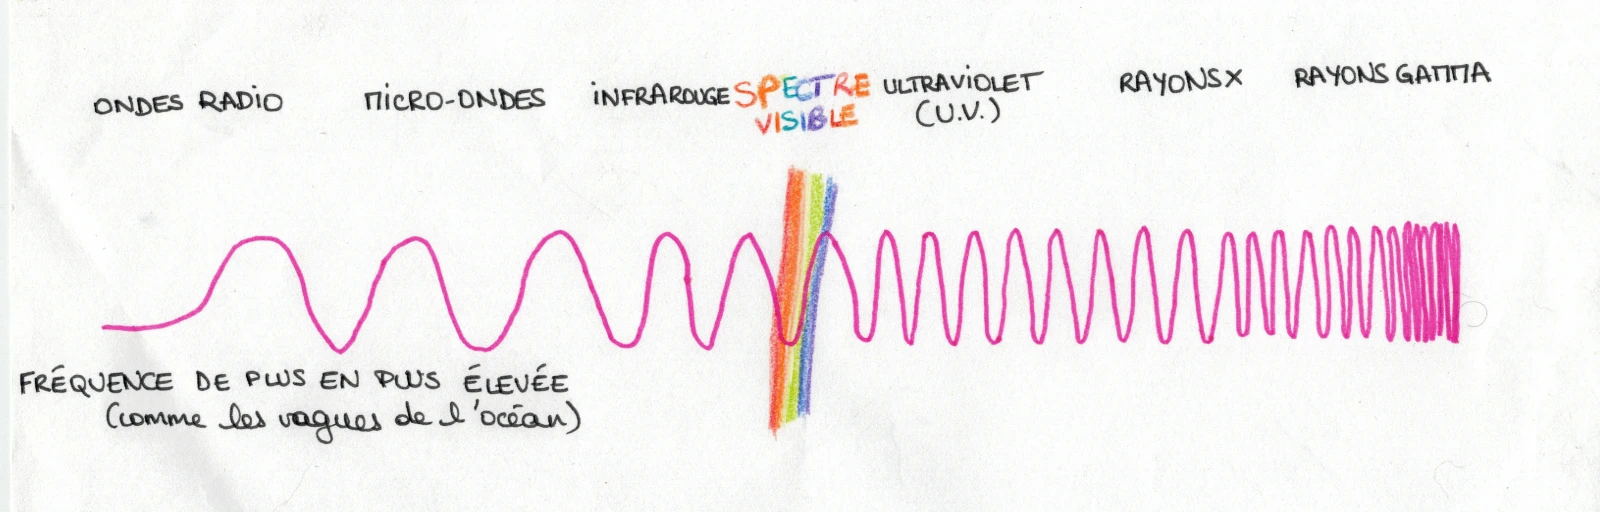 ONDES RADIO MICRO-ONDES INFRAROUGE SPECTRE VISIBLE ULTRAVIOLET (U.V.) RAYONS X RAYONS GAMMA
FRÉQUENCE DE PLUS EN PLUS ÉLEVÉE
(comme les vagues de l'océan)